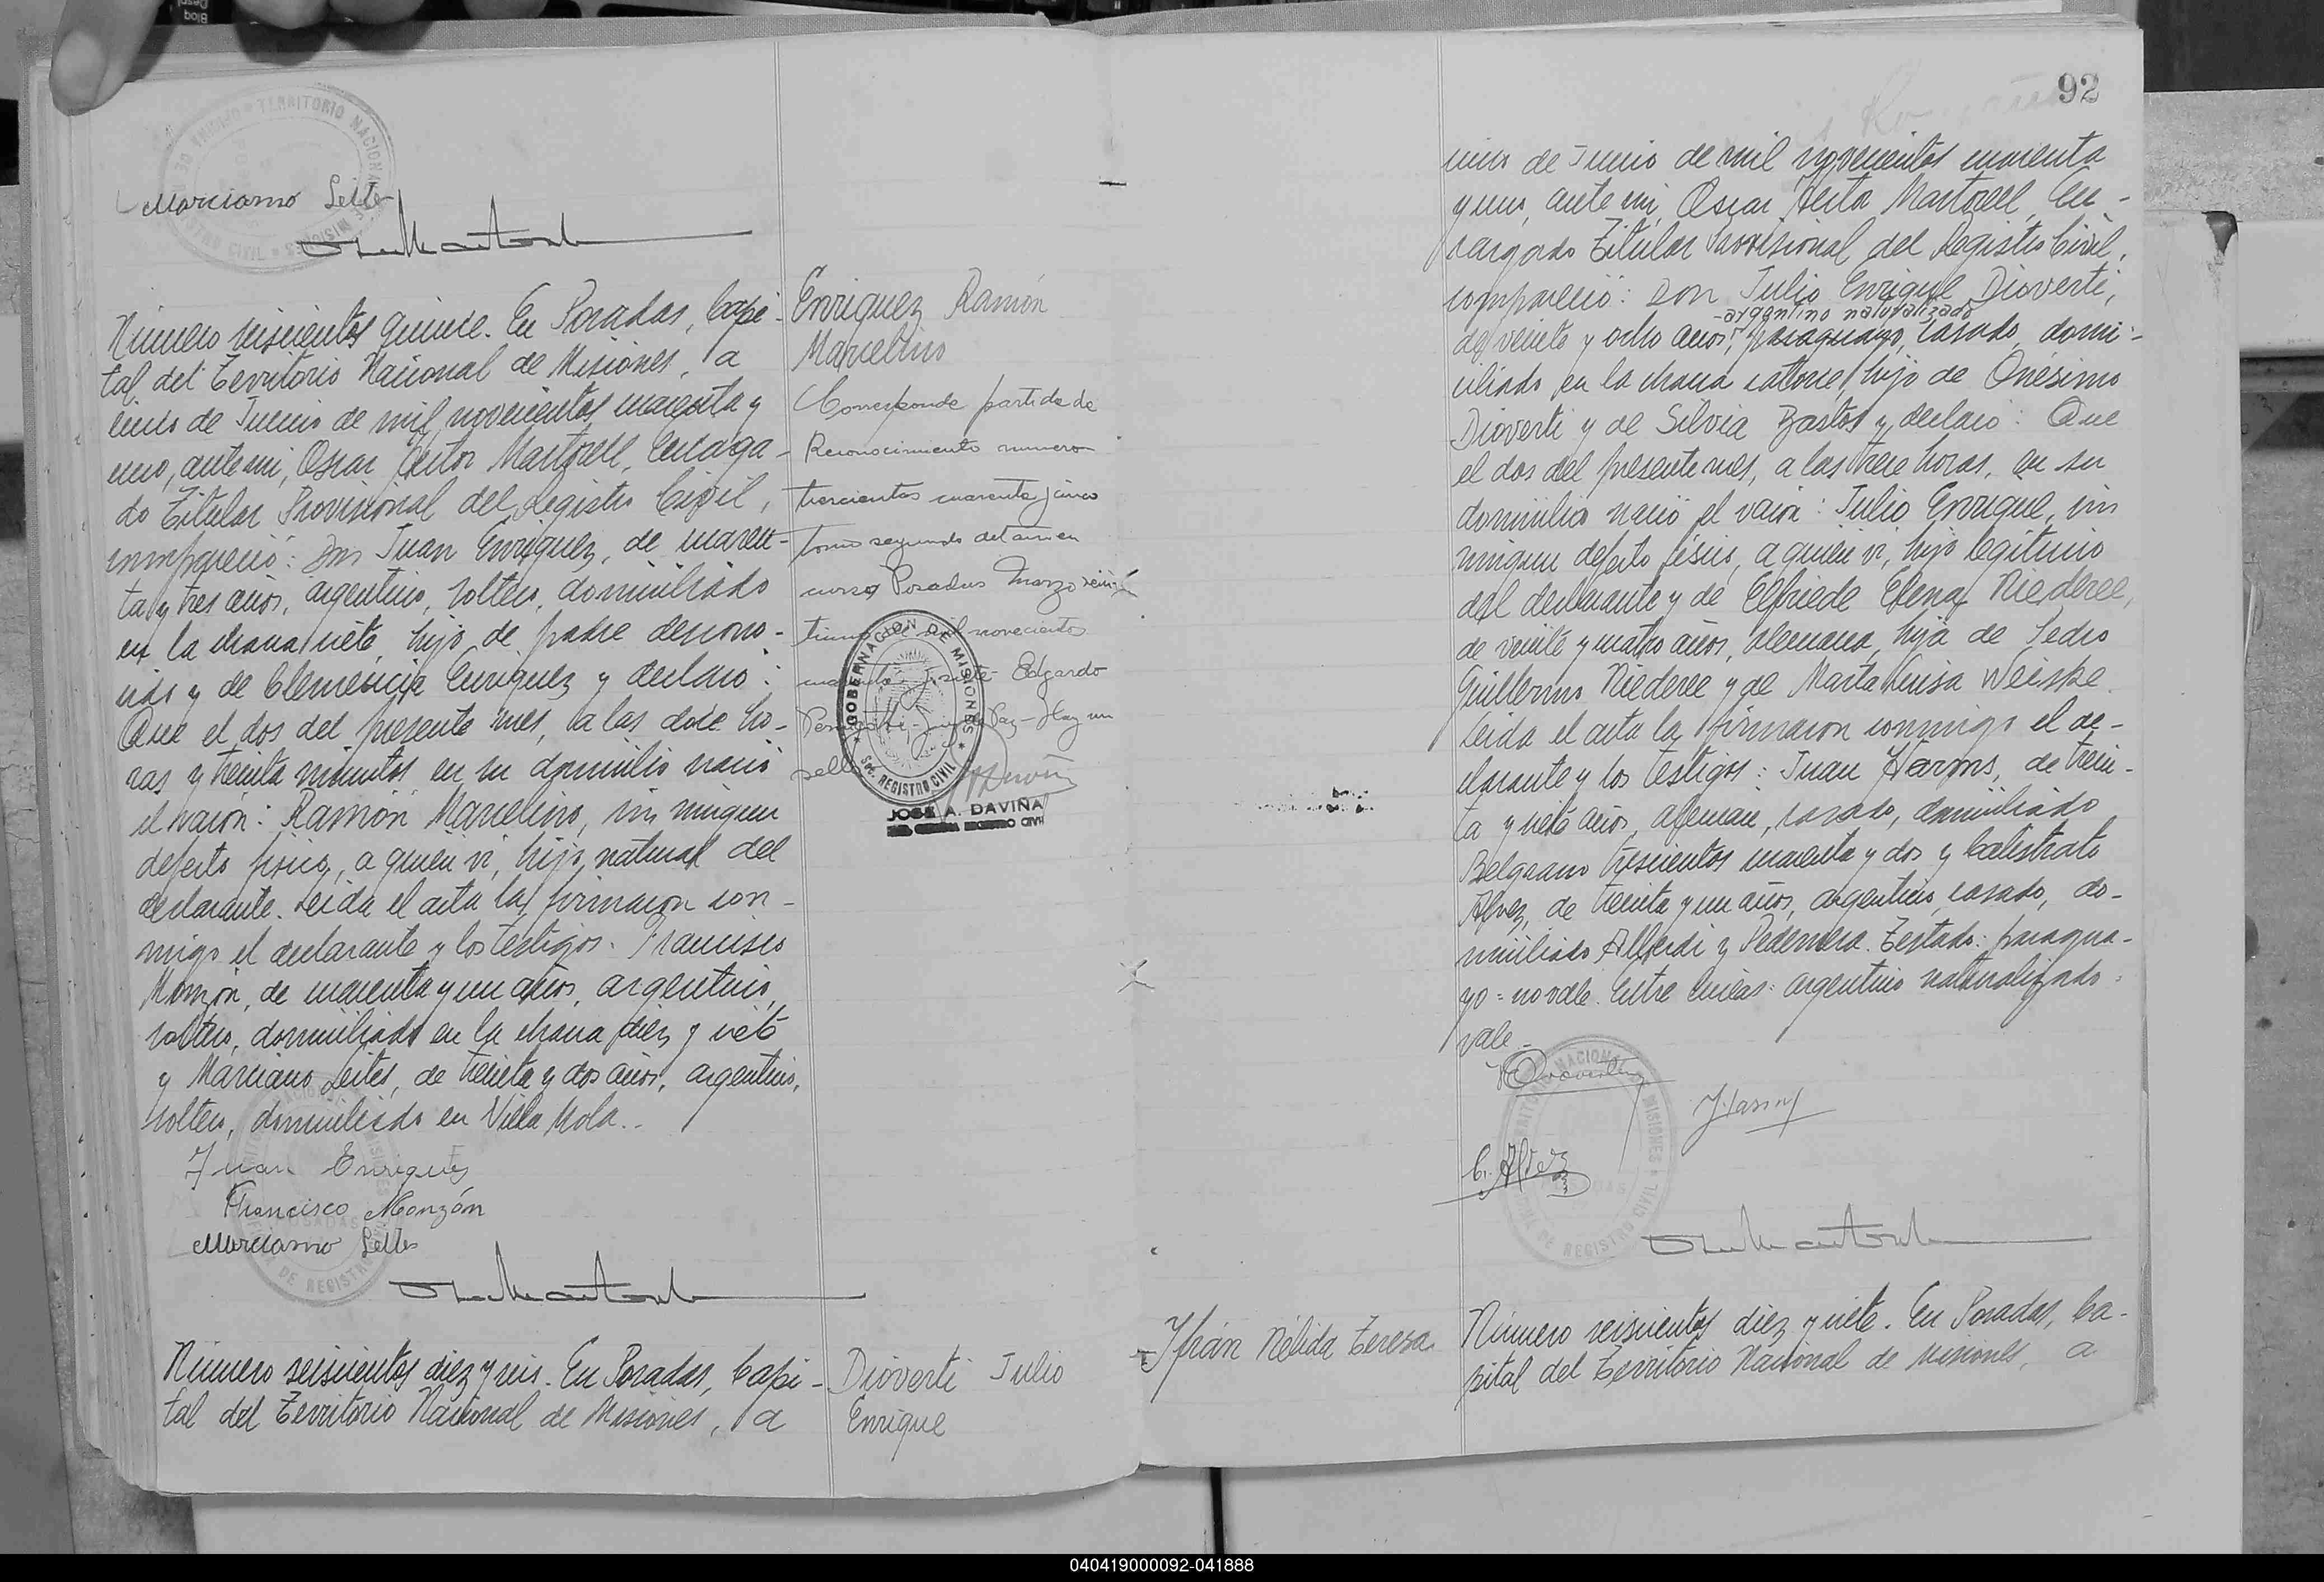 Marciano Leites
Número seiscientos quince. En Posadas, Capi-
tal del Territorio Nacional de Misiones, a
cinco de Junio de mil novecientos cuarenta y
uno, ante mi, Oscar Hector Martorell, Encarga-
do Titular Provisional del Registro Civil,
compareció: Don Juan Enriquez, de cuaren-
ta y tres años, argentino, soltero, domiciliado
en la chacra siete, hijo de padre descono-
cido y de Clemencia Enriquez y declaró:
Que el dos del presente mes, a las doce ho-
ras y treinta minutos en su domicilio nació
el varón: Ramón Marcelino, sin ningun
defecto fisico, a quien vi, hijo natural del
declarante. Leida el acta la firmaron con-
migo el declarante y los testigos: Francisco
Monzón, de cuarenta y un años, argentino,
soltero, domiciliado en la chacra diez y siete
y Marciano Leites, de treinta y dos años, argentino,
soltero, domiciliado en Villa Mola.
Juan Enriquez
Francisco Monzón
Marciano Leites
Número seiscientos diez y seis. En Posadas, Capi-
tal del Territorio Nacional de Misiones, a
Enriquez Ramón
Marcelino
Corresponde partida de
Reconocimiento numero
trescientos cuarenta y cinco
tomo segundo del año en
curso Posadas Marzo
novecientos
siete Edgardo
Paz - Hay un
sello
GOBERNACION DE MISIONES
REGISTRO CIVIL
JOSE A. DAVIÑA
REGISTRO CIVIL
Dioverti Julio
Enrique
92
cinco de Junio de mil novecientos cuarenta
y uno, ante mi, Oscar Hector Martorell, En-
cargado Titular Provisional del Registro Civil,
compareció: Don Julio Enrique Dioverti,
-argentino naturalizado
de veinte y ocho años, paraguayo, casado, domi-
ciliado en la chacra catorce, hijo de Onésimo
Dioverti y de Silvia Bastos y declaró: Que
el dos del presente mes, a las trece horas, en su
domicilio nació el varón: Julio Enrique, sin
ningun defecto fisico, a quien vi, hijo legitimo
del declarante y de Elfriede Elena Riederee,
de veinte y cuatro años, alemana, hija de Pedro
Guillermo Riederee y de Marta Luisa Weiske.
Leida el acta la firmaron conmigo el de-
clarante y los testigos: Juan Harms, de trein-
ta y siete años, aleman, casado, domiciliado
Belgrano trescientos cuarenta y dos y Calistrato
Alvez, de treinta y un años, argentino, casado, do-
miciliado Alberdi y Pedernera. Testado: paragua-
yo = no vale. Entre lineas: argentino naturalizado:
vale.-
J. Harms
C. Alvez
Ifrán Nélida Teresa
Número seiscientos diez y siete. En Posadas, Ca-
pital del Territorio Nacional de Misiones, a
040419000092-041888